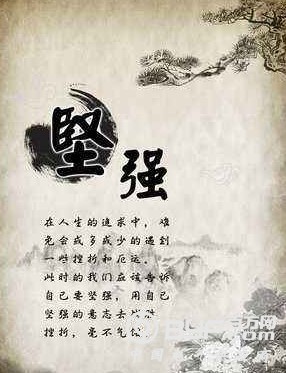 堅
强
在人生的追求中，难
免会或多或少的遇到
一些挫折和厄运，
此时的我们应该告诉
自己要坚强，用自己
坚强的意志去
挫折，毫不气